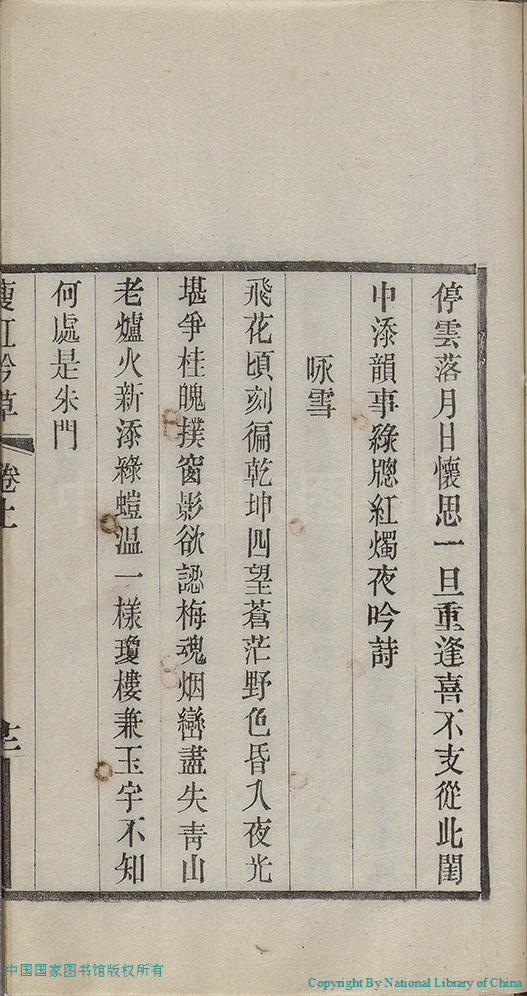 停雲落月日懷思一旦重逢喜不支從此閨
中添韻事綠牕紅燭夜吟詩
咏雪
飛花頃刻徧乾坤四望蒼茫野色昏入夜光
堪爭桂魄撲窗影欲認梅魂烟巒盡失靑山
老爐火新添綠螘溫一樣瓊樓兼玉宇不知
何處是朱門
瘦紅吟草
卷上
中国国家图书馆版权所有
Copyright By National Library of China